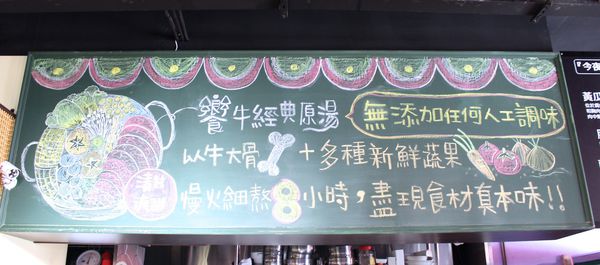 饗牛經典原湯
無添加任何人工調味
以牛大骨 + 多種新鮮蔬果
慢火細熬8小時，盡現食材真本味!!
清燉
『今夜
黃瓜